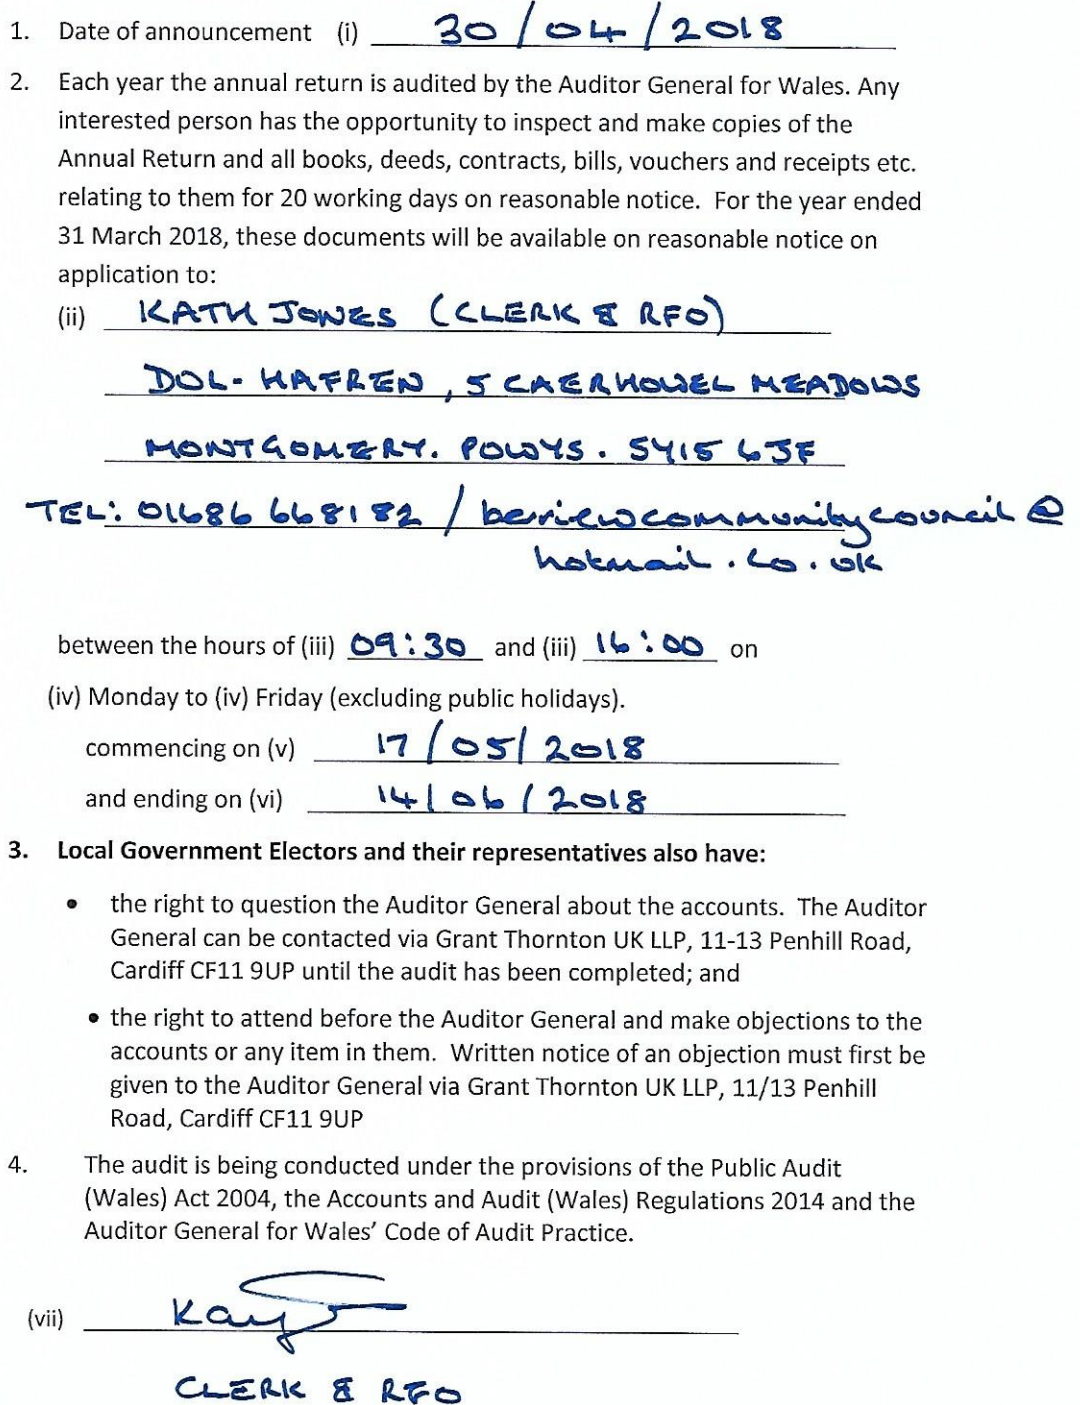 1. Date of announcement (i) 30/04/2018
2. Each year the annual return is audited by the Auditor General for Wales. Any
interested person has the opportunity to inspect and make copies of the
Annual Return and all books, deeds, contracts, bills, vouchers and receipts etc.
relating to them for 20 working days on reasonable notice. For the year ended
31 March 2018, these documents will be available on reasonable notice on
application to:
(ii) KATH JONES (CLERK & RFO)
DOL-HAFREN, 5 CAERHOWEL MEADOWS
MONTGOMERY. POWYS. SY15 6JF
TEL: 01686 668182 / berriewcommunitycouncil@
hotmail.co.uk
between the hours of (iii) 09:30 and (iii) 16:00 on
(iv) Monday to (iv) Friday (excluding public holidays).
commencing on (v) 17/05/2018
and ending on (vi) 14/06/2018
3. Local Government Electors and their representatives also have:
• the right to question the Auditor General about the accounts. The Auditor
General can be contacted via Grant Thornton UK LLP, 11-13 Penhill Road,
Cardiff CF11 9UP until the audit has been completed; and
• the right to attend before the Auditor General and make objections to the
accounts or any item in them. Written notice of an objection must first be
given to the Auditor General via Grant Thornton UK LLP, 11/13 Penhill
Road, Cardiff CF11 9UP
4. The audit is being conducted under the provisions of the Public Audit
(Wales) Act 2004, the Accounts and Audit (Wales) Regulations 2014 and the
Auditor General for Wales' Code of Audit Practice.
(vii)
CLERK & RFO